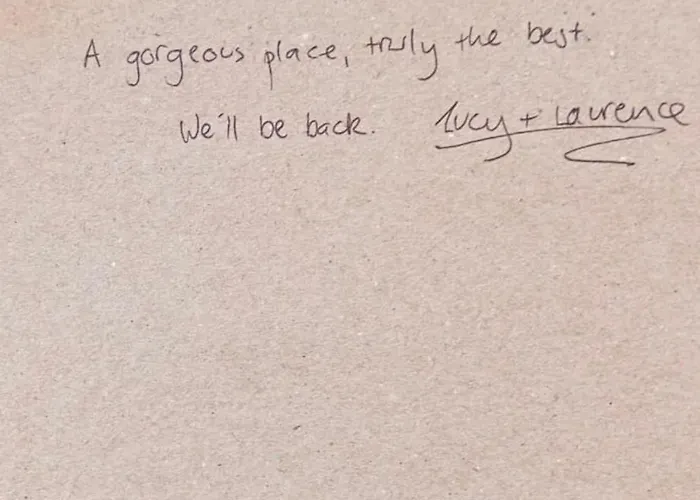 A gorgeous place, truly the best.
We'll be back. Lucy + Laurence